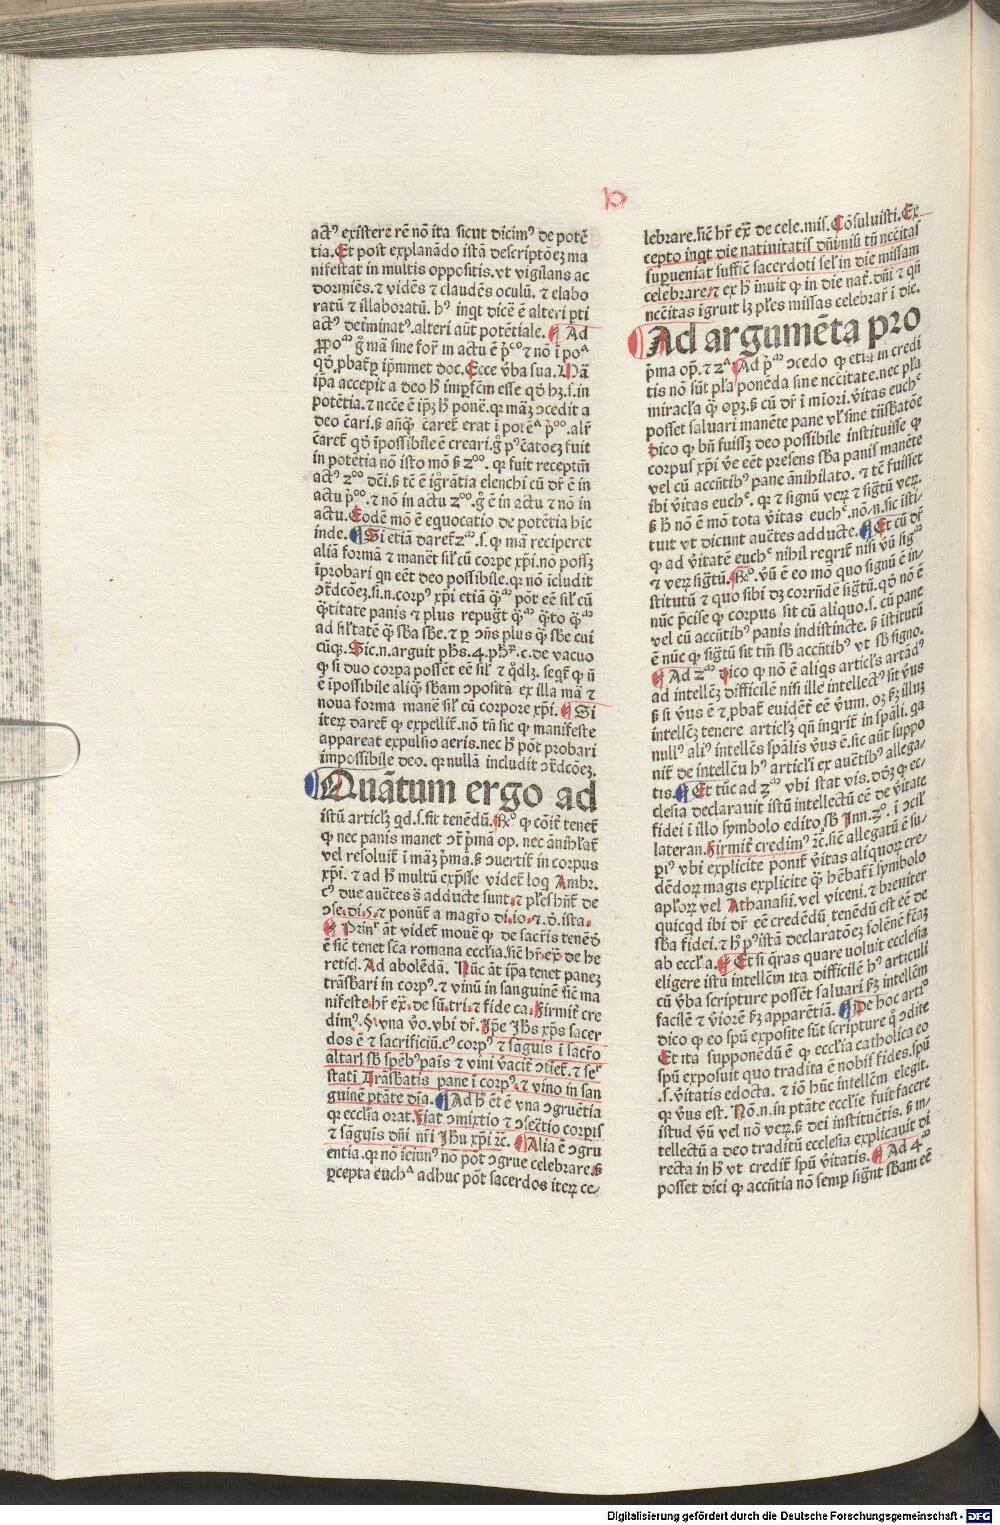 b
actꝰ existere rē nō ita sicut dicimꝰ de potē
tia. Et post explanādo istā descriptōeꝫ ma
nifestat in multis oppositis. vt vigilans ac
dormiēs. ⁊ vidēs ⁊ claudēs oculū. ⁊ elabo
ratū ⁊ illaboratū. hꝰ inqt dicē ē alteri pti
actꝰ det̄minatꝰ. alteri aūt potētiale. ¶ Ad
ꝓpoᵐ g̊ mā sine for̄ in actu ē p̄ᶜᵒ ⁊ nō ī poᵃ
qd̄ ꝓbat̄ ꝑ ip̄mmet doc. Ecce v̄ba sua. Mā
ip̄a accepit a deo hꝰ imꝑfc̄m esse qd̄ hꝫ. s. in
potētia. ⁊ ncc̄e ē ip̄ꝫ hꝰ ponē. qꝛ māꝫ ↄcedit a
deo c̄ari. ß añq̄ᵃ c̄aret̄ erat ī potēᵃ p̄ᵒᵒ. alr̄
c̄aret̄ qd̄ īpossibile ē creari. g̊ pꝰ c̄atoeꝫ fuit
in potētia nō isto mō ß 2ᵒᵒ. qꝛ fuit receptm̄
actꝰ 2ᵒᵒ dc̄i. ß tē ē ignr̄ātia elenchi cū dr̄ ē in
actu p̄ᵒᵒ. ⁊ nō in actu 2ᵒᵒ. g̊ ē in actu ⁊ nō in
actu. Eodē mō ē equocatio de potētia hic
inde. ¶ Si etiā daret̄ 2ᵐ. s. ꝙ mā reciperet
aliā formā ⁊ manēt sil̄ cū corpe xp̄i. nō possꝫ
īprobari qn eēt deo possibile. qꝛ nō īcludit
ↄt̄dcōeꝫ. si. n. corpꝰ xp̄i etiā q̄ᵐ pōt eē sil̄ cū
q̄titate panis ⁊ plus repugt̄ q̄ᵐ q̄to q̄ᵐ
ad sil̄tatē q̄ sba sbe. ⁊ ꝑ ↄn̄s plus q̄ sbe cui
cūqꝫ. Sic. n. arguit phs. 4. phꝝ. c. de vacuo
ꝙ si duo corpa possēt eē sil̄ ⁊ q̊dlꝫ. seqt̄ ꝙ n̄
ē īpossibile aliq̄ sbam ↄposita ex illa mā ⁊
noua forma manē sil̄ cū corpore xp̄i. ¶ Si
iterꝫ daret̄ ꝙ expellit̄. nō tn̄ sic ꝙ manifeste
appareat expulsio aeris. nec hꝰ pōt probari
impossibile deo. qꝛ nulla includit ↄt̄dcōeꝫ.
Quātum ergo ad
istū articl̄ꝫ qd. s. sit tenēdū. ℟º ꝙ cōit̄ tenet̄
ꝙ nec panis manet ↄt̄ p̄mā op. nec ānihilat̄
vel resoluit̄ ī māꝫ p̄mā. ß ↄuertit̄ in corpus
xp̄i. ⁊ ad hꝰ multū exp̄sse videt̄ loq Ambr.
cꝰ due auētes s̄ adducte sunt. ⁊ pl̄es hn̄t̄ de
ↄse. di. 5. ⁊ ponūt̄ a magr̄o di. io. ⁊. q̄. ista.
¶ Prin̄r āt videt̄ mouē ꝙ de sacr̄is tenēd̄
ē sic̄ tenet sc̄a romana eccl̄ia. sic̄ hr̄. ex̄ de he
retic̄. Ad abolēdā. Nūc āt ip̄a tenet panez
trāsbari in corpꝰ. ⁊ vinū in sanguinē sic̄ ma
nifeste. hr̄ ex̄. de sū. tri. ⁊ fide ca. Firmit̄ cre
dimꝰ. §. vna v̄o. vbi dr̄. Ip̄e Ihs xp̄s sacer
dos ē ⁊ sacrificiū. cꝰ corpꝰ ⁊ sāguis ī sacr̄o
altar̄ sb̄ spēbꝰ pais ⁊ vini v̄acit̄ ↄtiet̄. ⁊ sel̄
stati Trāsbatis pane ī corpꝰ. ⁊ vino in san
guinē ptāte dīa. ¶ Ad hꝰ ēt ē vna ↄgruētia
qꝛ eccl̄ia orat. Fiat ↄmixtio ⁊ ↄsec̄tio corpis
⁊ sāguis dn̄i nr̄i Ihu xp̄i ⁊c̄. ¶ Alia ē ↄgru
entia. qꝛ nō ieiunꝰ nō pōt ↄgrue celebrare. ß
ꝑcepta euchᵃ adhuc pōt sacerdos iterꝫ ce-
lebrare. sic̄ hr̄ ex̄ de cele. mis. Cōsuluisti. Ex
cepto inqt die natiuitatis dn̄i nisi tn̄ nec̄itas
superueniat suffic̄ē sacerdoti sel̄ in die missam
celebrare. ⁊ ex hꝰ īnuit ꝙ in die nat̄. dn̄i ⁊ qn̄
nec̄itas īgruit lꝫ pl̄es missas celebrar̄ ī die.
Ad argumēta pro
p̄ma op̄. ⁊ 2ᵃ. Ad p̄ᵐ ↄcedo ꝙ etiā in credi
tis nō sūt pl̄a ponēda sine ncc̄itate. nec pl̄a
miracl̄a q̄ᵃ opꝫ. ß cū dr̄ ī miori. v̄itas euchᵉ
posset saluari manēte pane vl̄ sine trāsbatōe
Dico ꝙ bn̄ fuissꝫ deo possibile instituisse ꝙ
corpus xp̄i v̄e eēt presens sba panis manēte
vel cū accn̄tibꝰ pane ānihilato. ⁊ tē fuisset
ibi v̄itas euchᵉ. qꝛ ⁊ signū verꝫ ⁊ siḡtū verꝫ.
ß hꝰ nō ē mō tota v̄itas euchᵉ. nō. n. sic isti-
tuit vt dicunt auētes adducte. ¶ Et cū dr̄
ꝙ ad v̄itatē euchᵉ nihil reqrit̄ nisi v̄ū sigᵐ
⁊ verꝫ siḡtū. ℟º. v̄ū ē eo mō quo signū ē in-
stitutū ⁊ quo sibi dꝫ corrn̄dē siḡtū. qd̄ nō ē
nūc p̄cise ꝙ corpus sit cū aliquo. s. cū pane
vel cū accn̄tibꝰ panis indistincte. ß īstitutū
ē nūc ꝙ siḡtū sit tm̄ sb̄ accn̄tibꝰ vt sb̄ signo.
¶ Ad 2ᵐ Dico ꝙ nō ē aliqs articl̄s artādꝰ
ad intellc̄ꝫ difficilē nisi ille intellectꝰ sit v̄us
ß si v̄us ē ⁊ ꝓbat̄ euidēt̄ eē v̄um. oꝫ ßꝫ illuꝫ
intellc̄ꝫ tenere articl̄ꝫ qn̄ inqrit̄ in spāli. qa
nullꝰ aliꝰ intellc̄s spālis v̄us ē. sic aūt suppo
nit̄ de intellcū hꝰ articl̄i ex auētibꝰ allega-
tis. ¶ Et tūc ad 2ᵐ vbi stat vis. dd̄ꝫ ꝙ ec-
clesia declarauit istū intellectū eē de v̄itate
fidei ī illo symbolo edito sb̄ Inn. 3º. ī ↄcil̄
lateran. Firmit̄ credimꝰ ⁊c̄. sic̄ allegatū ē su-
piꝰ vbi explicite ponit̄ v̄itas aliquorꝫ cre-
dēdorꝫ magis explicite q̄ hēbat̄ ī symbolo
apl̄orꝫ vel Athanasii. vel viceni. ⁊ breuiter
quicqd ibi dr̄ eē credēdū tenēdū est eē de
sba fidei. ⁊ hꝰ pꝰ istā declaratōeꝫ solēnē fc̄aꝫ
ab eccl̄a. ¶ Et si q̄ras quare uoluit ecclesia
eligere istū intellc̄m ita difficilē hꝰ articuli
cū v̄ba scripture possēt saluari ßꝫ intellc̄m
facilē ⁊ v̄iorē ßꝫ apparētiā. ¶ De hoc artiº
dico ꝙ eo spū exposite sūt scripture q̊ ↄdite
Et ita supponēdū ē ꝙ eccl̄ia catholica eo
spū exposuit quo tradita ē nobis fides. spū
. s. v̄itatis edocta. ⁊ iō hūc intellc̄m elegit.
qꝛ v̄us est. Nō. n. in ptāte eccl̄ie fuit facere
istud v̄ū vel nō verꝫ. ß dei instituētis. ß in-
tellectū a deo traditū ecclesia explicauit di
recta in hꝰ vt credit̄ spū v̄itatis. ¶ Ad 4ᵐ
posset dici ꝙ accn̄tia nō semꝑ sign̄t sbam eē
Digitalisierung gefördert durch die Deutsche Forschungsgemeinschaft - DFG